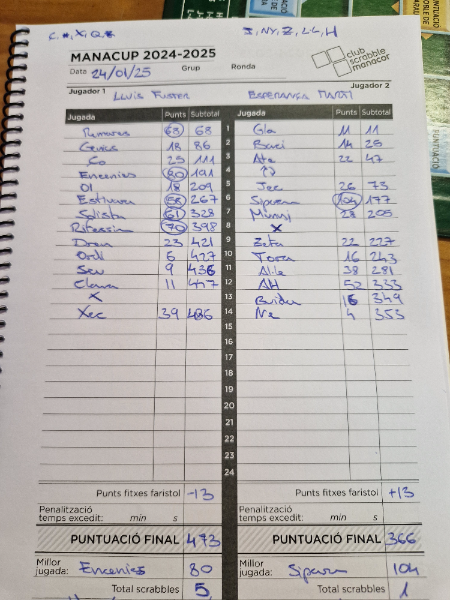 C, H, X, Q, S
J, NY, Z, L·L, H
MANACUP 2024-2025
club scrabble manacor
Data 24/01/25 Grup Ronda
Jugador 1 LLUÍS FUSTER
Jugador 2 ESPERANÇA MARTÍ
Jugada Punts Subtotal Jugada Punts Subtotal
68 68 1 Gla 11 11
18 86 2 14 25
Co 25 111 3 Ate 22 47
Encenies 80 191 4
Ol 18 209 5 Jec 26 73
58 267 6 104 177
Solista 61 328 7 28 205
70 398 8 X
Dren 23 421 9 Zeta 22 227
Ordi 6 427 10 16 243
Seu 9 436 11 38 281
11 447 12 AH 52 333
X 13 16 349
Xec 39 486 14 Ne 4 353
15
16
17
18
19
20
21
22
23
24
Punts fitxes faristol -13 Punts fitxes faristol +13
Penalització temps excedit: min s Penalització temps excedit: min s
PUNTUACIÓ FINAL 473 PUNTUACIÓ FINAL 366
Millor jugada: Encenies 80 Millor jugada: 104
Total scrabbles 5 Total scrabbles 1